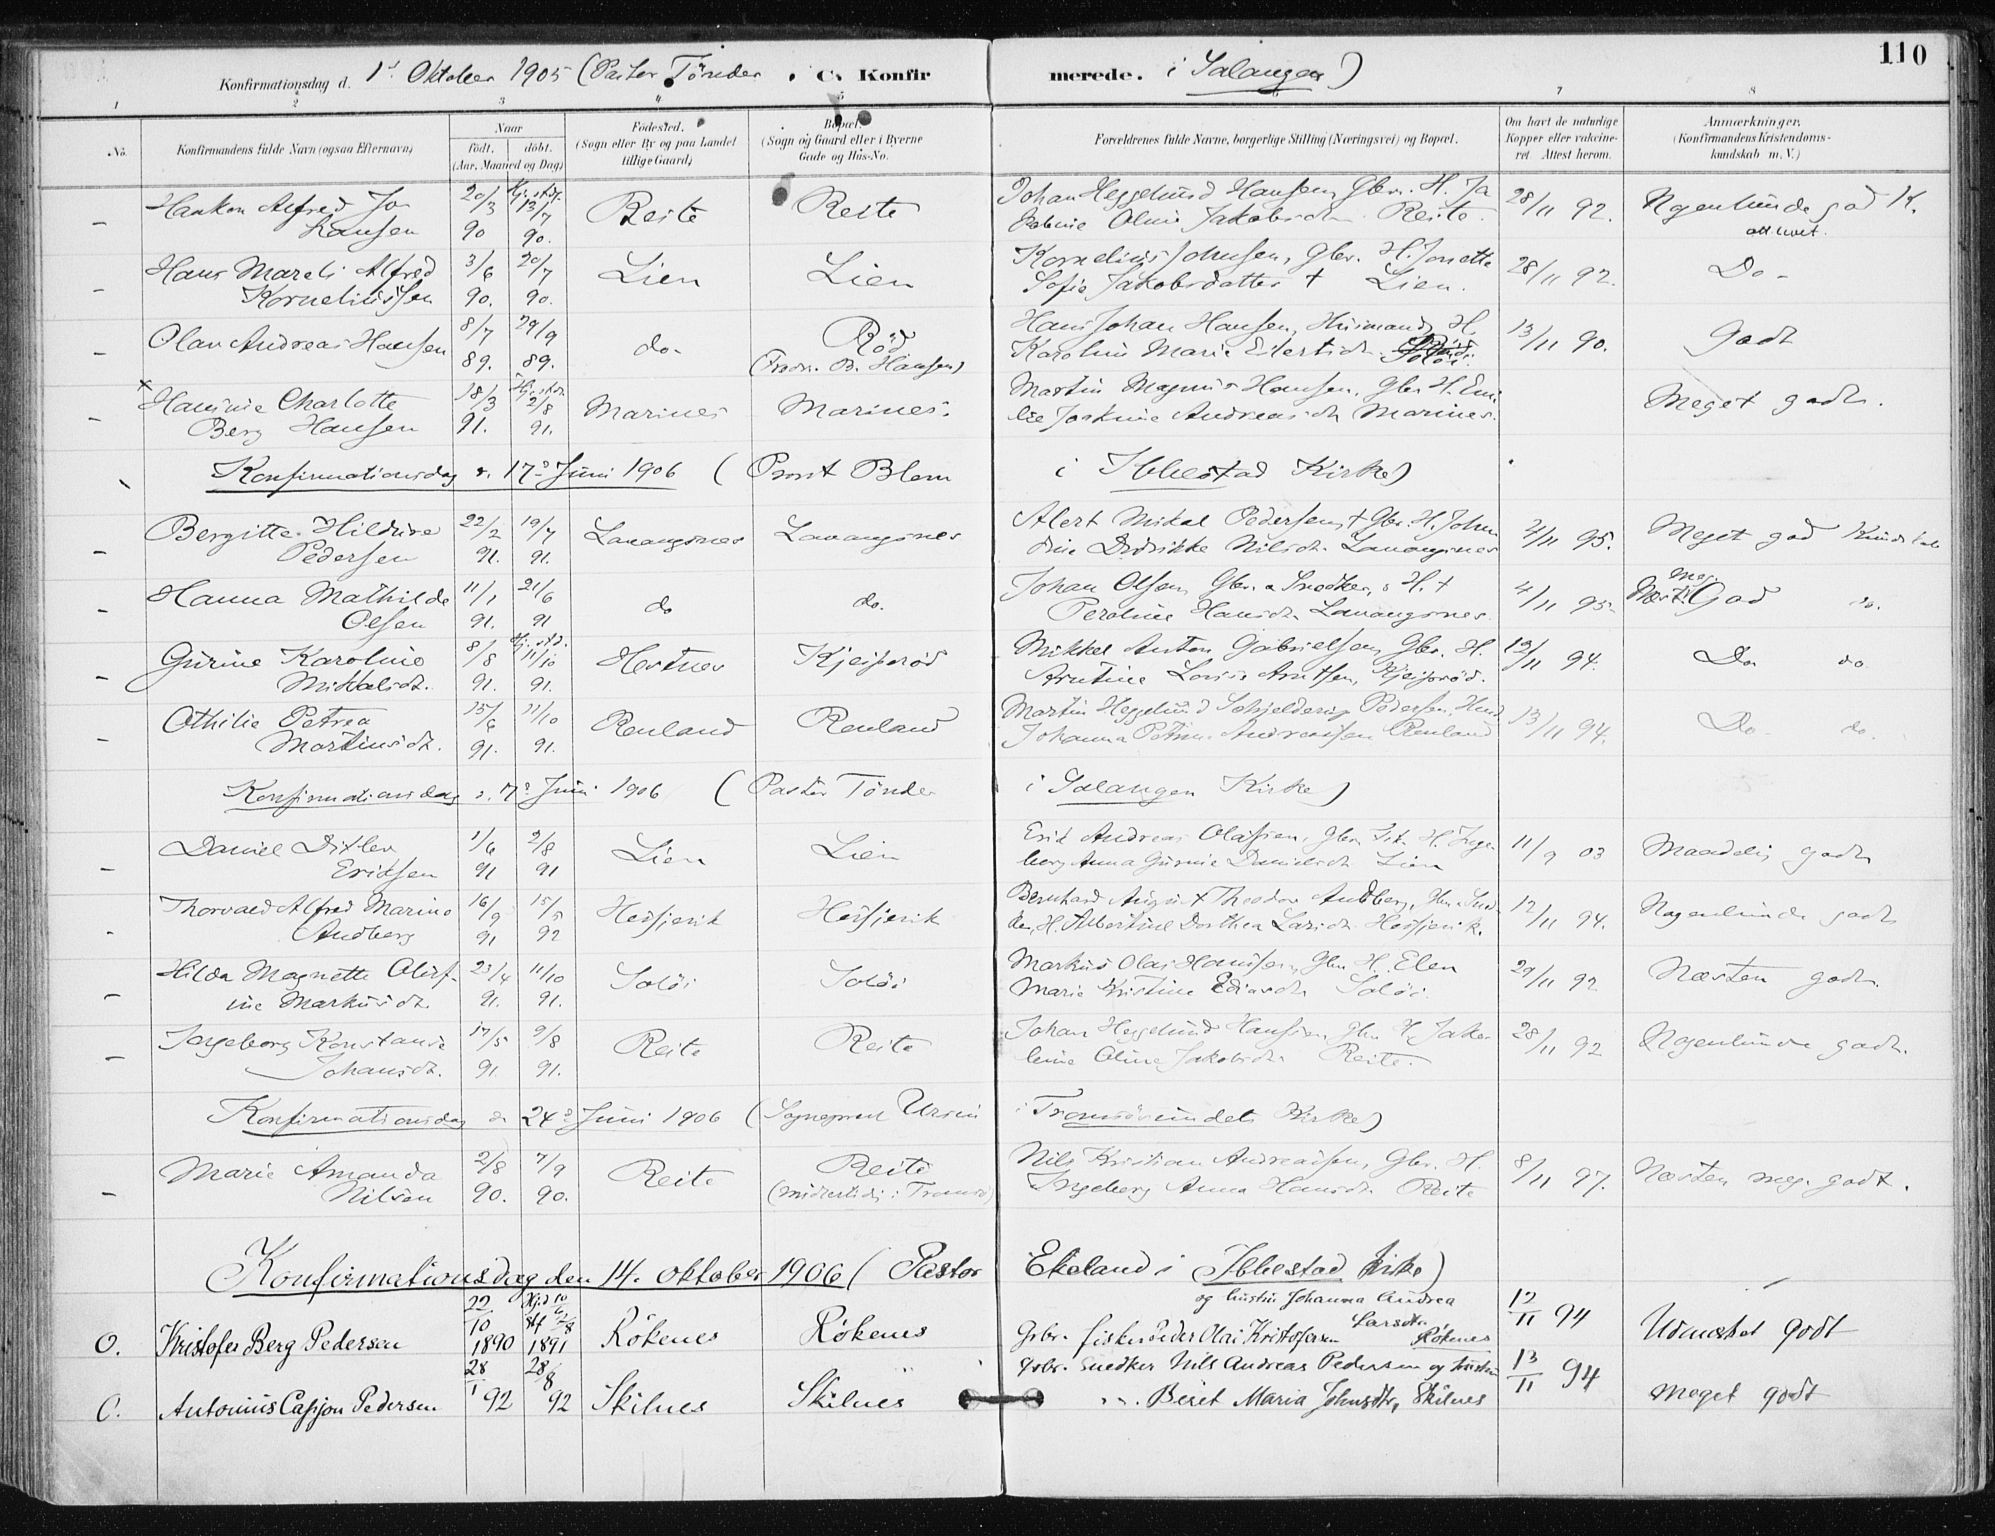 110
Konfirmationsdag d. 1st Oktober 1905 (Pastor Tönder C. Konfirmerede. i Salangen)
1 2 3 4 5 6 7 8
No. Konfirmandens fulde Navn (ogsaa Efternavn) Naar født. døbt. (Aar, Maaned og Dag) Fødested. (Sogn eller By og paa Landet tillige Gaard) Bopæl. (Sogn og Gaard eller i Byerne Gade og Hus-No. Forældrenes fulde Navne, borgerlige Stilling (Næringsvei) og Bopæl. Om havt de naturlige Kopper eller vaccineret Attest herom. Anmærkninger. (Konfirmandens Kristendomskundskab m. V.)
Haakon Alfred Jo- 20/3 Hj. 13/7 Reite Reite Johan Heggelund Hansen, Gbr. H. Ja 28/11 92. Nogenlunde god K.
hansen 90 90. Oline Jakobsdtr. Reite.
Hans Mareli Alfred 3/6 20/7 Lien Lien Kornelius Johnsen, Gbr. H. Jonette 28/11 92. Do -
Korneliussen 90. 90. Sofie Jakobsdatter + Lien.
Olav Andreas Hansen 8/7 29/9 do. Röd Hans Johan Hansen, Husmand, H. 13/11 90. Godt
89. 89. (B. Hansen) Karoline Marie Eilertsdtr. Solöi
x Hansine Charlotte 18/3 2/8 Marines Marines. Martin Magnus Hansen, Gbr. H. Emi Meget godt.
Berg Hansen 91. 91. lie Joakime Andreasdtr Marines.
Konfirmationsdag d. 17d Juni 1906 ( Provst Blom i Ibbestad Kirke)
Bergitte Hildine 22/2 19/7 Lavangsnes Lavangsnes Alert Mikal Pedersen + Gbr. H. John 2/11 95. Meget god Kundskab
Pedersen 91. 91. dine Didrikke Nilsdtr. Lavangsnes
Hanna Mathilde 11/1 21/6 do do. Johan Olsen, Gbr. & Snedker, & H. + 4/11 95. meg. God do.
Olsen 91. 91 Peroline Hansdtr. Lavangsnes.
Gurine Karoline 8/8 11/10 Hestnes Kjeiprød Mikkel Anton Gabrielsen, Gbr. H. 12/11 94. Do do
Mikkalsdtr. 91. 91. Arntine Lovise Arntsen, Kjeiprød.
Othilie Petrea 15/6 11/10 Renland Renland Martin Heggelund Schjelderup Pedersen, 13/11 94. Do do.
Martinusdtr. 91. 91. Johanna Petrine Andreassen Renland
Konfirmationsdag d. 7d Juni 1906 ( Pastor Tönder i Salangen Kirke)
Daniel Ditlev 1/6 2/8 Lien Lien Erik Andreas Olaisen, Gbr. H. Inge 11/9 03 Maadelig godt
Eriksen 91 91 borg Anna Gurine Danielsdtr Lien
Thorvald Alfred Marino 16/9 15/5 Hesjevik Hesjevik Bernhard August Theodor Andberg, Gbr. Sned 12/11 94. Nogenlunde godt
Andberg 91 92 ker, H. Albertine Dorthea Larsdtr. Hesjevik.
Hilda Magnette Oluf- 23/4 11/10 Solöi Solöi Markus Olai Hansen, Gbr. H. Elen 29/11 92 Næsten godt.
ine Markusdtr. 91. 91. Marie Kristine Solöi.
Ingeborg Konstanse 17/5 9/8 Reite Reite Johan Heggelund Hansen, Gbr. H. Jako 28/11 92 Nogenlunde godt.
Johansdtr. 91. 91. bine Oline Jakobsdtr. Reite.
Konfirmationsdag d 24d Juni 1906 (Sogneprest Ursin i Tromsösundets Kirke)
Marie Amanda 2/8 7/9 Reite Reite Nils Kristian Andreassen, Gbr. H. 8/11 97. Næsten meg. godt.
Nilsen 90. 90. (midlertidig i Tromsö) Ingeborg Anna Hansdtr. Reite
Konfirmationsdag den 14. oktober 1906 ( Pastor Ekeland i Ibbestad kirke)
og hustru Johanna Andrea
O. Kristofer Berg Pedersen 22/10 1890 1891 Rökenes Rökenes Grbr. fisker Peder Olai Kristofersen Larsdtr. Rökenes 12/11 94 Udmerket godt
O. Antonius Capjon Pedersen 28/1 92 28/8 92 Skilnes Skilnes Grbr. Snedker Nils Andreas Pedersen og hustru 13/11 94 Meget godt
Beret Maria Johnsdtr, Skilnes